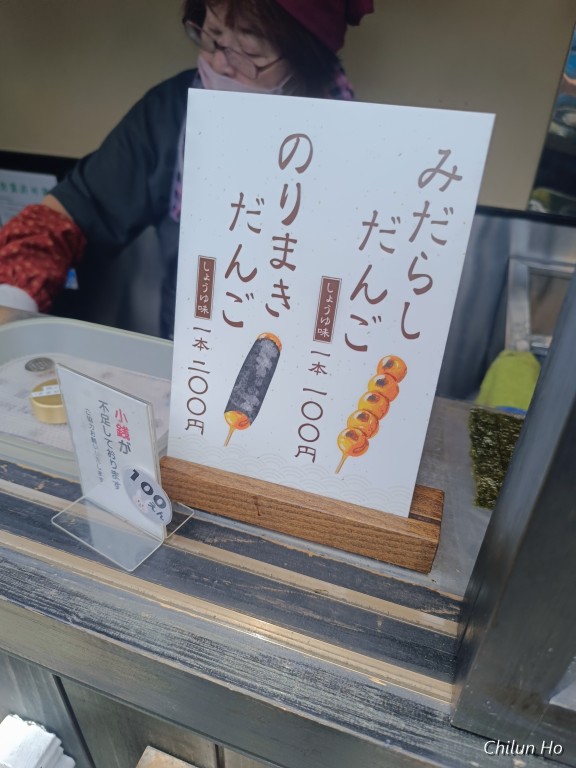 みだらし
だんご
しょうゆ味
一本 一〇〇円
のりまき
だんご
しょうゆ味
一本 二〇〇円
小銭が
不足しております
ご協力お願いします
100
えん
Chilun Ho